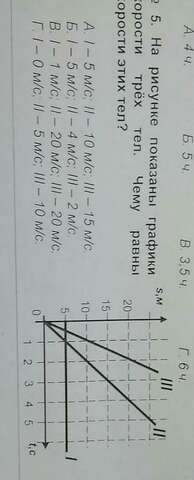 А. 4 ч. Б. 5 ч. В. 3,5 ч. Г. 6 ч.
5. На рисунке показаны графики
скорости трёх тел. Чему равны
скорости этих тел?
А. I – 5 м/с; II – 10 м/с; III – 15 м/с.
Б. I – 5 м/с; II – 4 м/с; III – 2 м/с.
В. I – 1 м/с; II – 20 м/с; III – 20 м/с.
Г. I – 0 м/с; II – 5 м/с; III – 10 м/с.
s,м
20
15
10
5
0
1 2 3 4 5 t,с
III
II
I